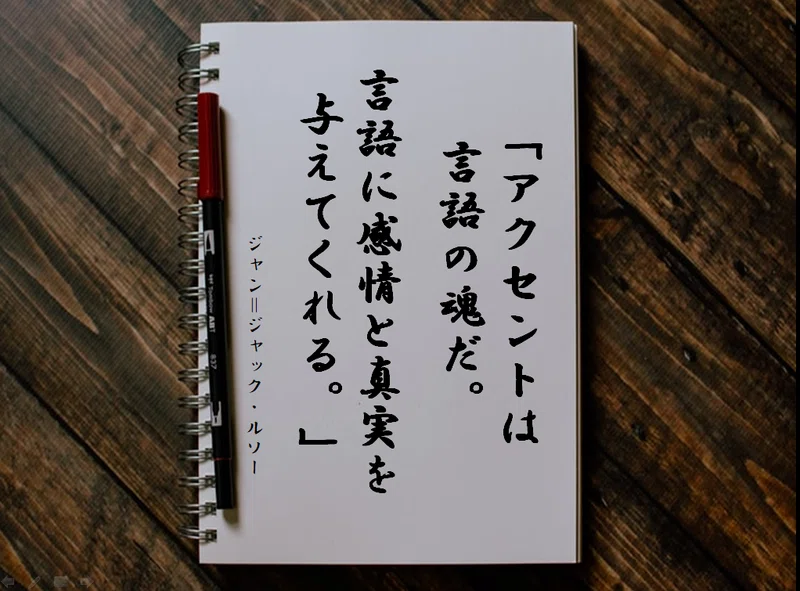 「アクセントは
言語の魂だ。
言語に感情と真実を
与えてくれる。」
ジャン=ジャック・ルソー
ABT
837